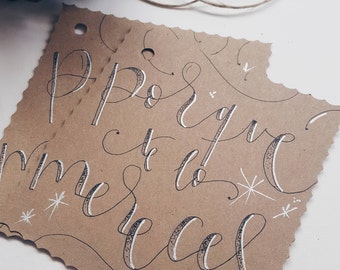 P Porque
te lo
mereces